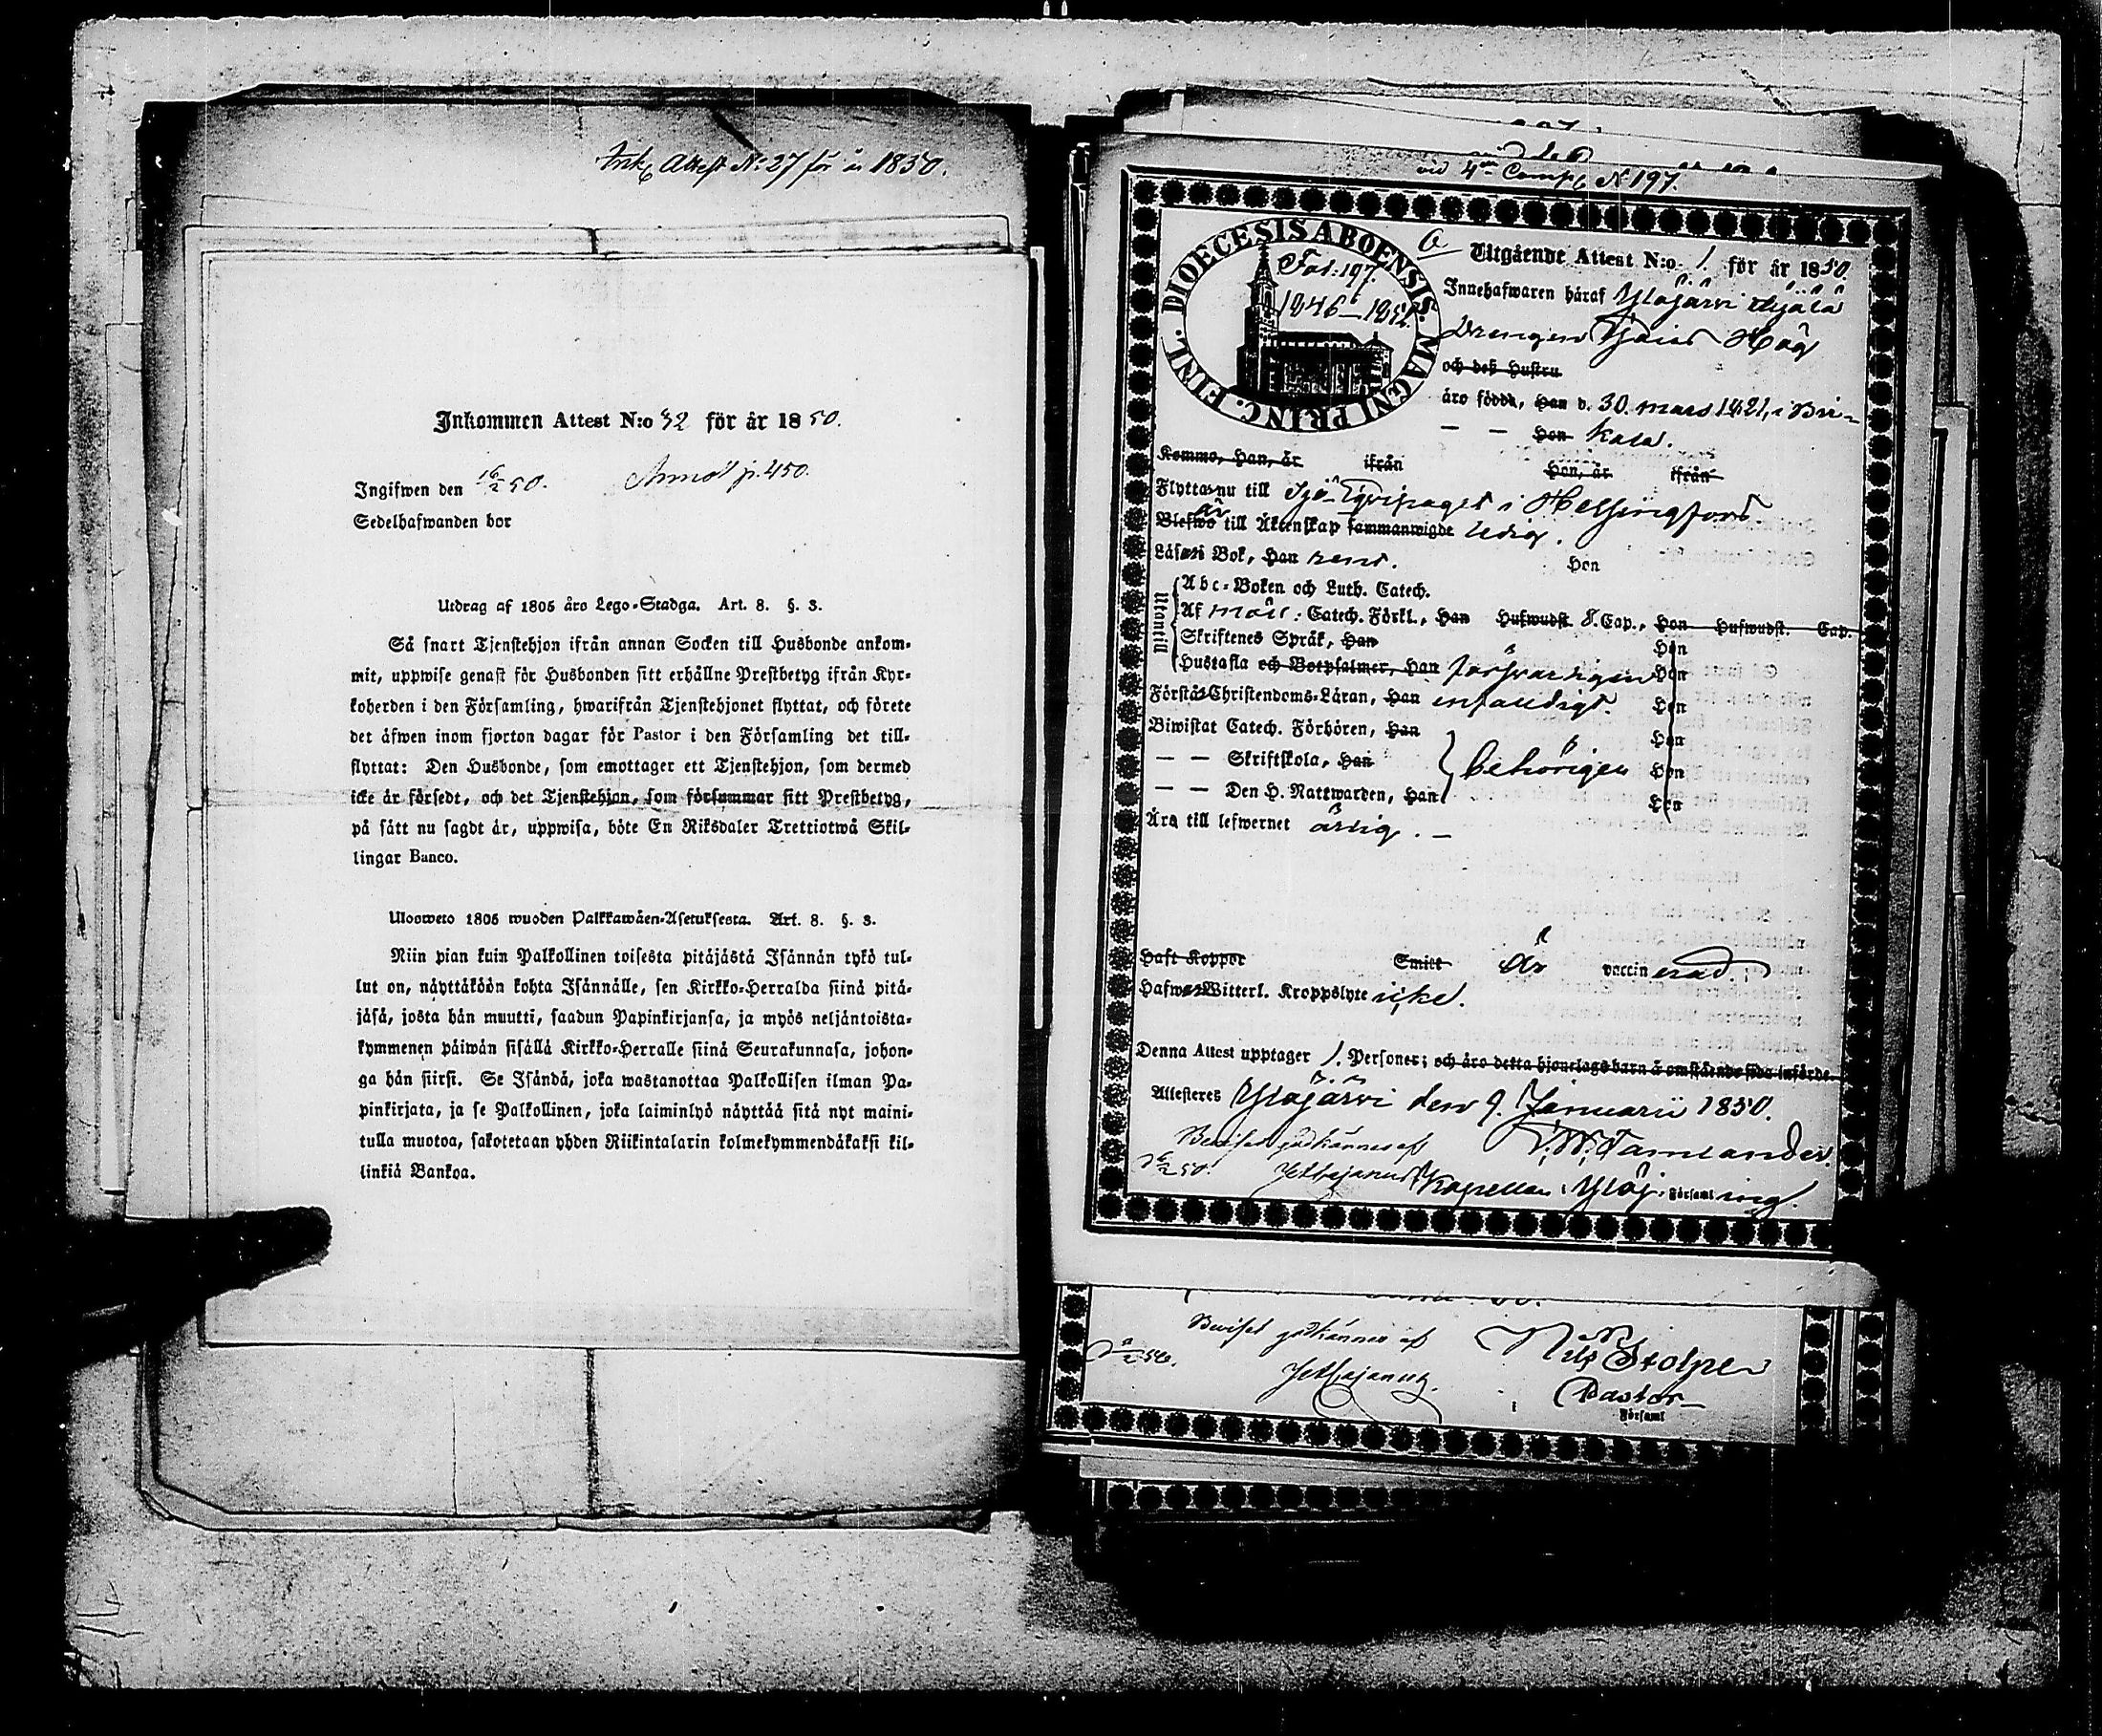 Ink. Attest N:o 27 för år 1850.
Inkommen Attest N:o 32 för år 1850.
Ingifwen den 16/2 50. Anmält p. 450.
Sedelhafwanden bor
Utdrag af 1805 års Lego-Stadga. Art. 8. §. 3.
Så snart Tjenstehjon ifrån annan Socken till Husbonde ankom-
mit, uppwise genast för Husbonden sitt erhållne Prestbetyg ifrån Kyr-
koherden i den Församling, hwarifrån Tjenstehjonet flyttat, och förete
det äfwen inom fjorton dagar för Pastor i den Församling det till-
flyttat: Den Husbonde, som emottager ett Tjenstehjon, som dermed
icke är försedt, och det Tjenstehjon, som försummar sitt Prestbetyg,
på sätt nu sagdt är, uppwisa, böte En Riksdaler Trettiotwå Skil-
lingar Banco.
Ulosweto 1805 wuoden Palkkawäen-Asetuksesta. Art. 8. §. 3.
Niin pian kuin Palkollinen toisesta pitäjästä Isännän tykö tul-
lut on, näyttäköön kohta Isännälle, sen Kirkko-Herralda siinä pitä-
jäsä, josta hän muutti, saadun Papinkirjansa, ja myös neljäntoista-
kymmenen päiwän sisällä Kirkko-Herralle siinä Seurakunnasa, johon-
ga hän siirsi. Se Isändä, joka wastanottaa Palkollisen ilman Pa-
pinkirjata, ja se Palkollinen, joka laiminlyö näyttää sitä nyt maini-
tulla muotoa, sakotetaan yhden Riikintalarin kolmekymmendäkaksi kil-
linkiä Bankoa.
vid 4de Comp. N 197.
DIOECESIS ABOENSIS. MAGNI PRINC. FINL.
Fol: 197.
1846–1852.
Utgående Attest N:o 1. för år 1850.
Innehafwaren häraf Ylöjärvi
Drengen Höög
och deß Hustru
äro födde, Han d. 30. mars 1821, i Bir-
— — Hon kala.
Komme, Han, år ifrån Hon, år ifrån
Flytta nu till Sjö Equipaget i Helsingfors
Blefwo är till Äktenskap sammanwigde ledig.
Läsa i Bok, Han rent. Hon
Utantill
Abc-Boken och Luth. Catech.
Af Möll: Catech. Förkl., Han Hufwudst. 8. Cap., Hon Hufwudst. Cap.
Skriftenes Språk, Han Hon
Hustafla och Botpsalmer, Han försvarligen Hon
Förstå Christendoms-Läran, Han enfaldigt. Hon
Biwistat Catech. Förhören, Han Hon
— — Skriftskola, Han behörigen Hon
— — Den H. Nattwarden, Han Hon
Äro till lefwernet ärlig. —
Haft Koppor Smitt Är vaccinerad.
Hafwa Witterl. Kroppslyte icke.
Denna Attest upptager 1. Personer; och äro detta hjonelags barn å omstående sida införde.
Attesteras Ylöjärvi den 9. Januarii 1850.
Beviset godkännes af
d 16/2 50.
Kapellan i Ylöj. Församling.
Beviset godkännes af Nils Stolpe
Pastor
Församl